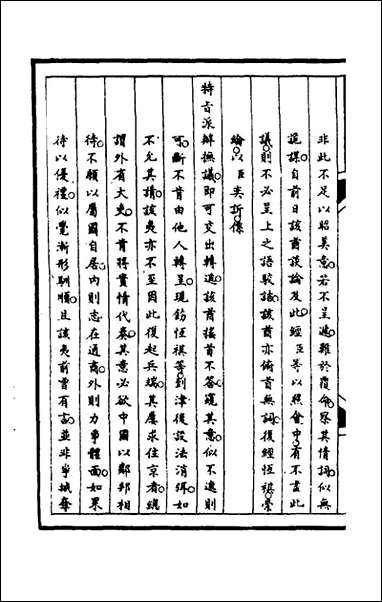 非此不足以昭美意若不呈遞難於復命察其情詞似無
詭謀自前日該酋談論及此經臣等以照會中有不盡此
議則不必呈上之語駁詰該酋亦俯首無詞復經恆祺常
綸以臣奕訢像
特旨派辦撫議即可交出轉遞該酋搖首不答窺其意似不遞則
可斷不肯由他人轉呈現飭恆祺等到津後設法消弭如
不允其請該夷亦不至因此復起兵端其屢求住京者總
謂外省大吏不肯將實情代奏其意必欲中國以鄰邦相
待不願以屬國自居內則志在通商外則力爭體面如果
待以優禮似覺漸形馴順且該夷前曾有言並非爭城奪